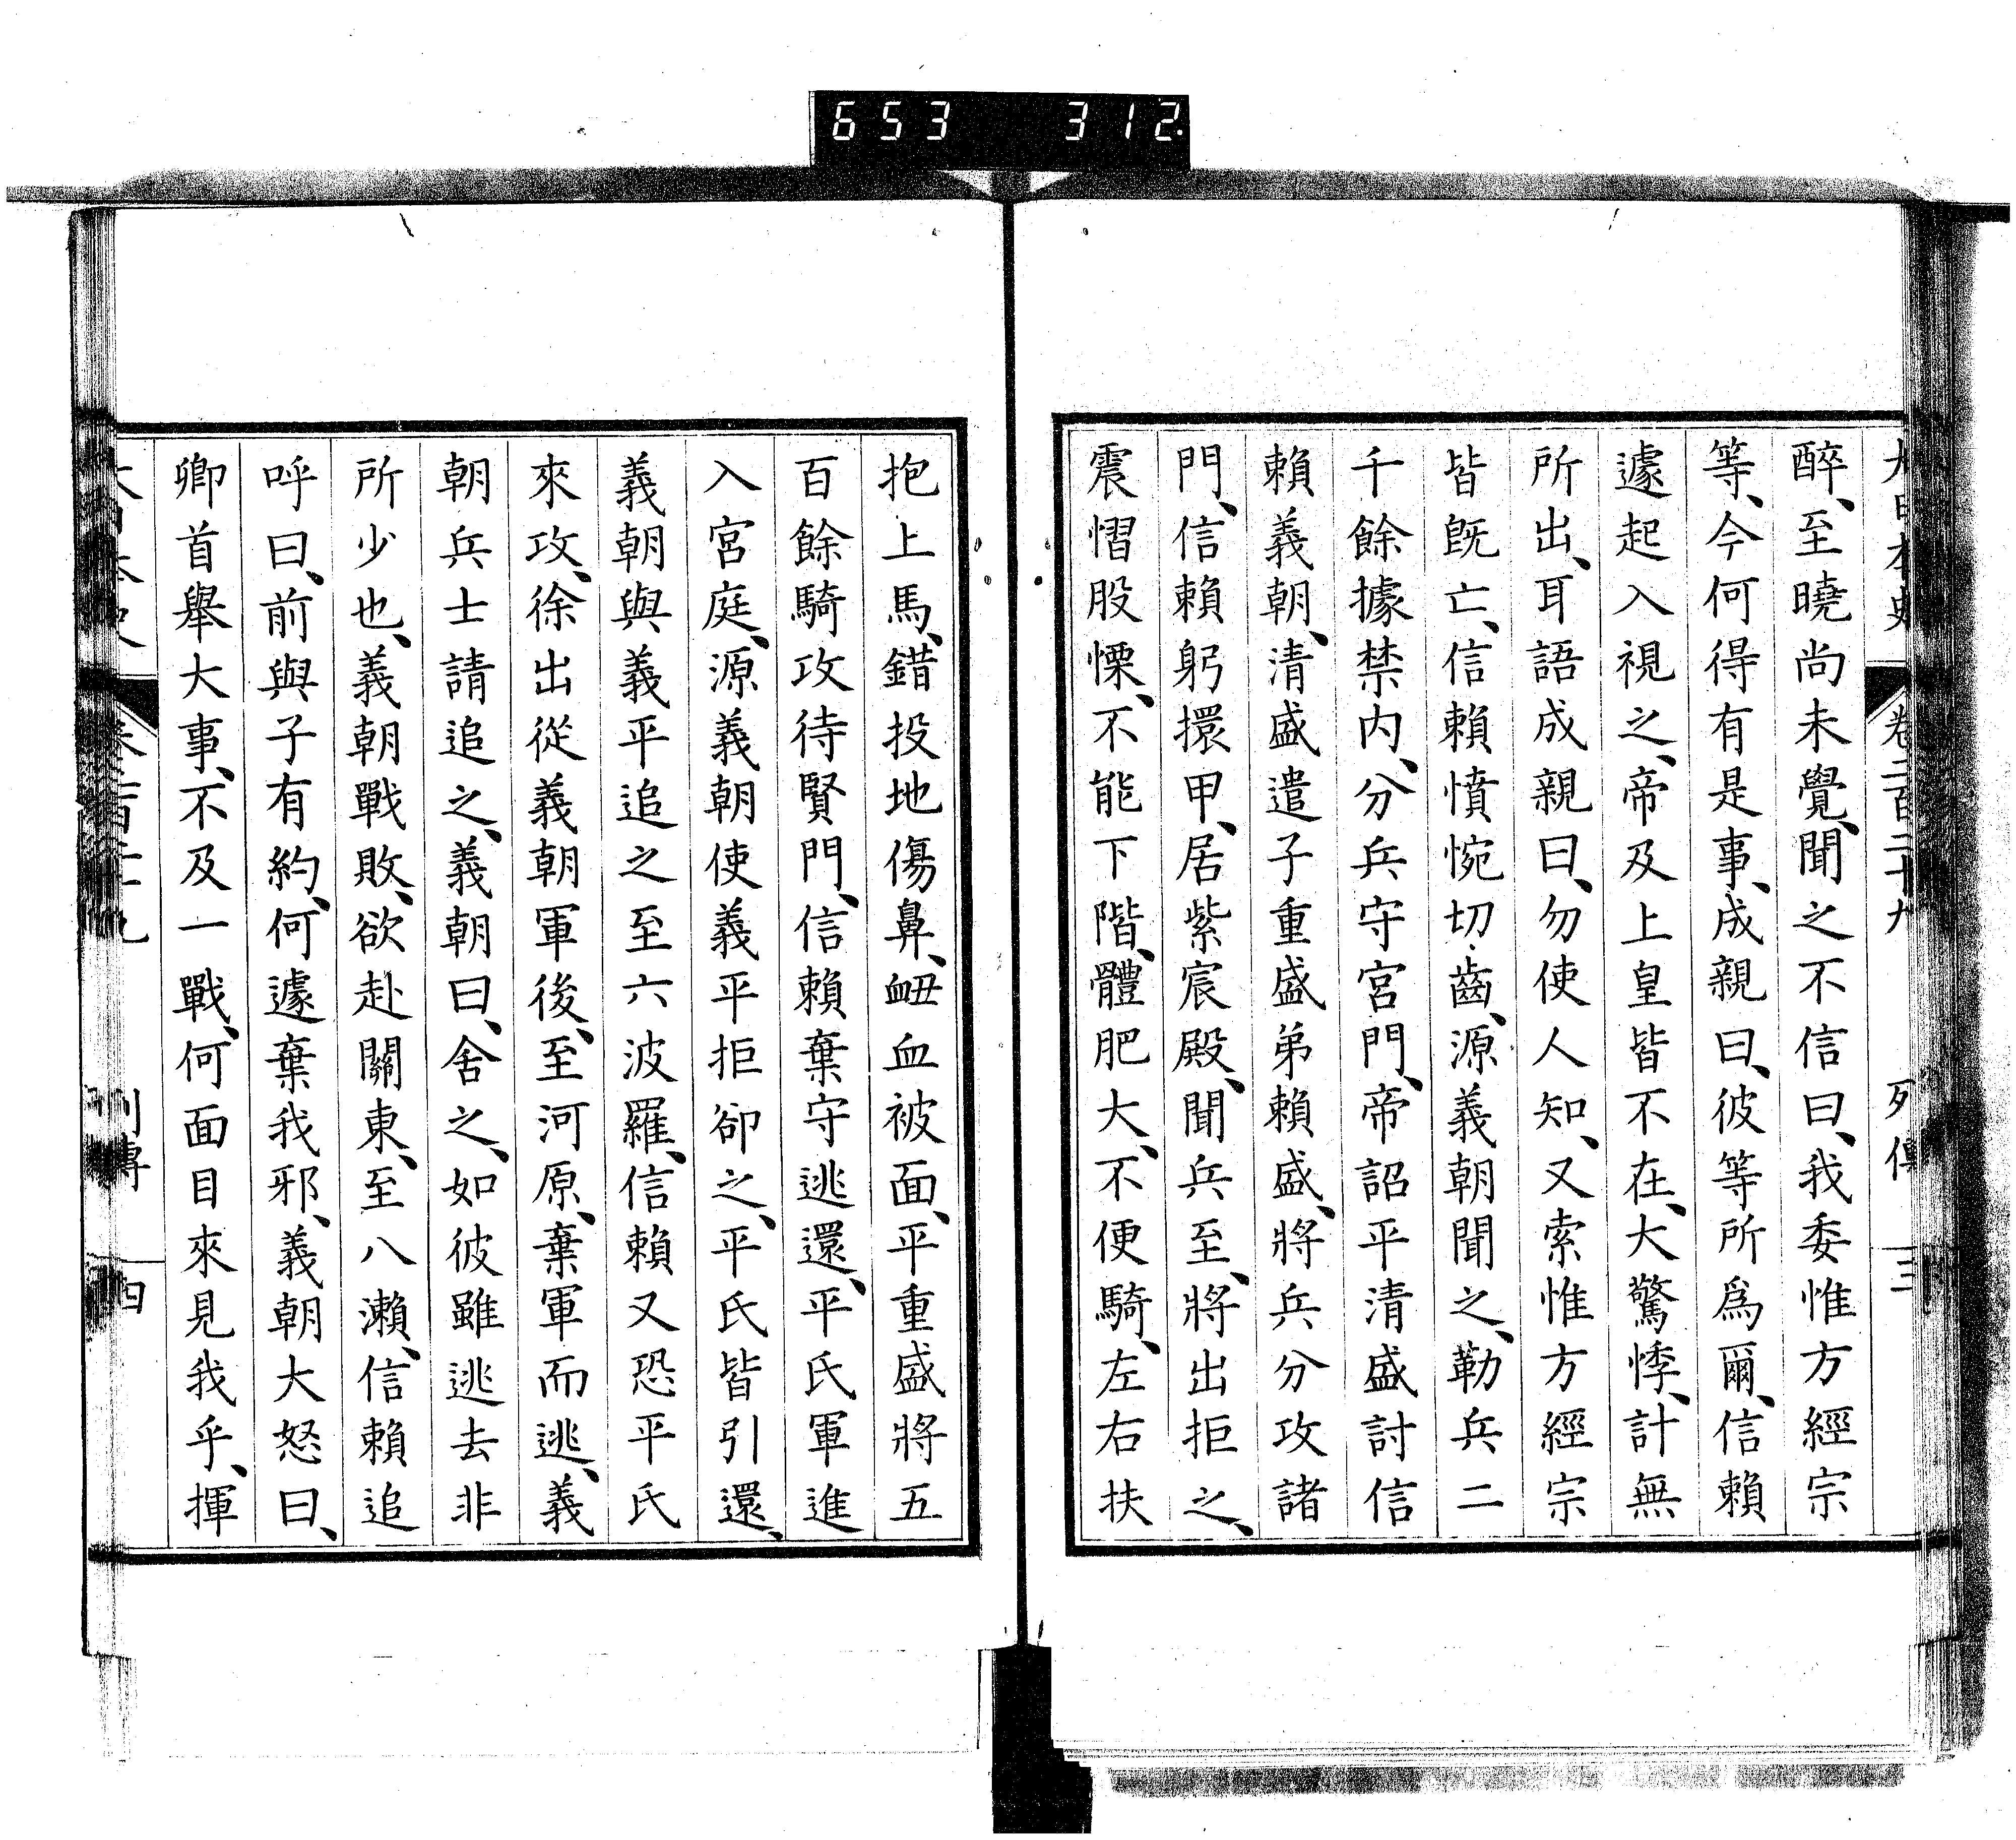 653 312
大日本史 卷二百二十九 列傳 三
醉、至曉尚未覺、聞之不信曰、我委惟方經宗
等、今何得有是事、成親曰、彼等所爲爾、信賴
遽起入視之、帝及上皇皆不在、大驚悸、計無
所出、耳語成親曰、勿使人知、又索惟方經宗
皆既亡、信賴憤惋切齒、源義朝聞之、勒兵二
千餘據禁内、分兵守宮門、帝詔平清盛討信
賴義朝、清盛遣子重盛弟賴盛、將兵分攻諸
門、信賴躬擐甲、居紫宸殿、聞兵至、將出拒之、
震慴股慄、不能下階、體肥大、不便騎、左右扶
抱上馬、錯投地傷鼻、衄血被面、平重盛將五
百餘騎攻待賢門、信賴棄守逃還、平氏軍進
入宮庭、源義朝使義平拒卻之、平氏皆引還、
義朝與義平追之至六波羅、信賴又恐平氏
來攻、徐出從義朝軍後、至河原、棄軍而逃、義
朝兵士請追之、義朝曰、舍之、如彼雖逃去非
所少也、義朝戰敗、欲赴關東、至八瀨、信賴追
呼曰、前與子有約、何遽棄我邪、義朝大怒曰、
卿首舉大事、不及一戰、何面目來見我乎、揮
大日本史 卷二百二十九 列傳 四